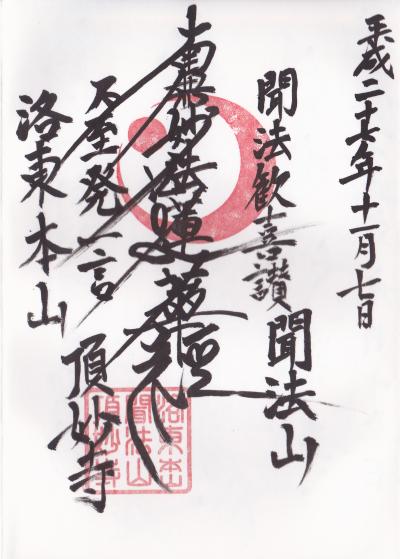 平成二十七年十一月七日
聞法歓喜讃 聞法山
南無妙法蓮華経
乃至発一言
洛東本山 頂妙寺
洛東本山
聞法山
頂妙寺